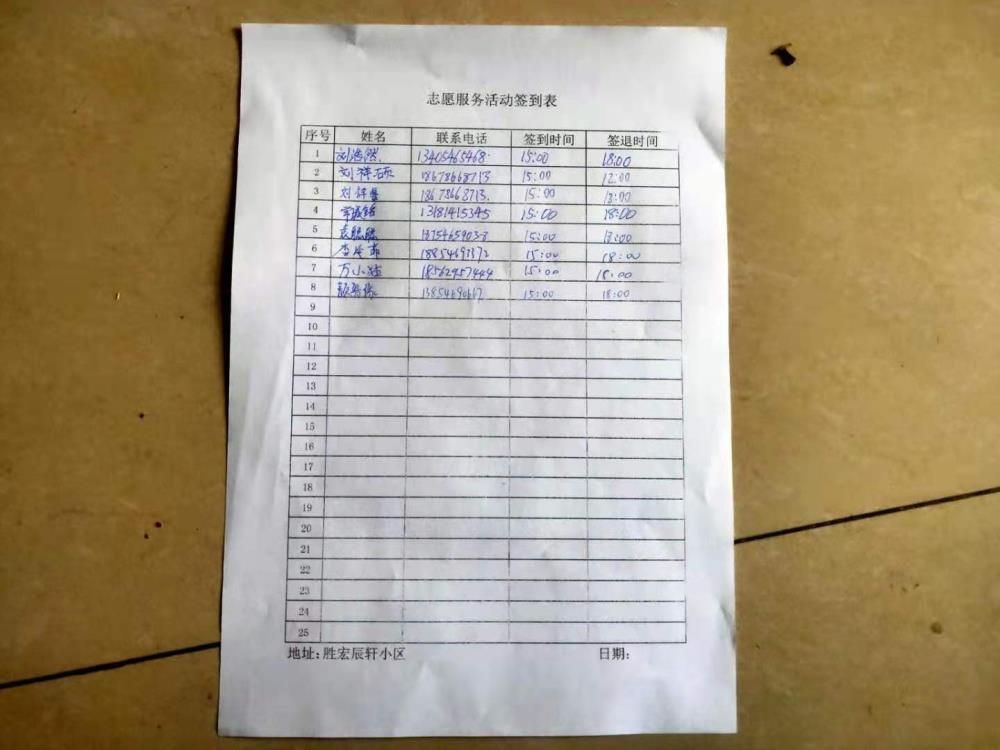 志愿服务活动签到表
序号 姓名 联系电话 签到时间 签退时间
1 刘浩然 13405465468 15:00 18:00
2 刘祥硕 18678668713 15:00 12:00
3 刘祥 18678668713 15:00 18:00
4 13181415345 15:00 18:00
5 袁聪聪 15:00 18:00
6 15:00 18:00
7 万小 18562957444 15:00 18:00
8 15:00 18:00
9
10
11
12
13
14
15
16
17
18
19
20
21
22
23
24
25
地址：胜宏辰轩小区 日期：